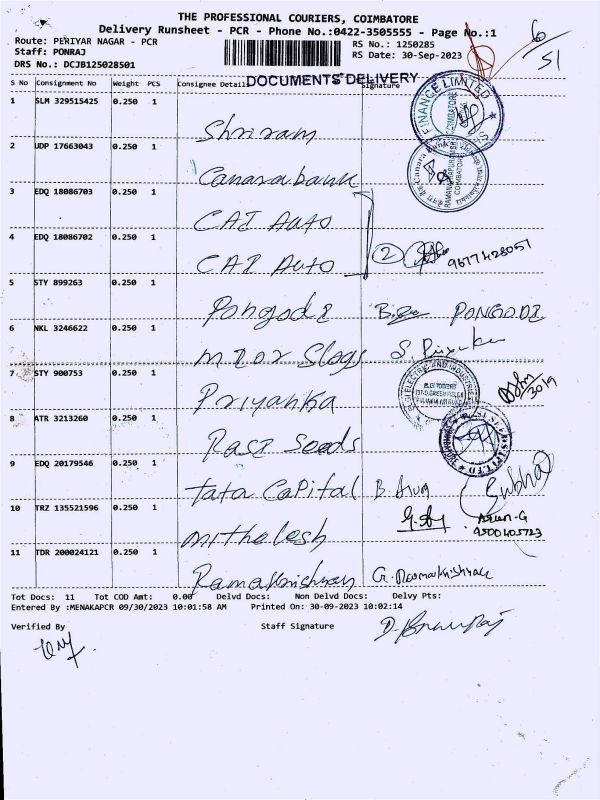 THE PROFESSIONAL COURIERS, COIMBATORE
Delivery Runsheet - PCR - Phone No.:0422-3505555 - Page No.:1
Route: PERIYAR NAGAR - PCR
RS No.: 1250285
Staff: PONRAJ
RS Date: 30-Sep-2023
DRS No.: DCJB125028501
6
51
S No Consignment No Weight PCS Consignee Details Signature
DOCUMENTS DELIVERY
1 SLM 329515425 0.250 1
Shriram
FINANCE LIMITED
COIMBATORE
2 UDP 17663043 0.250 1
Canarabank
Canara Bank
COIMBATORE
3 EDQ 18086703 0.250 1
CAI Auto
4 EDQ 18086702 0.250 1
CAI Auto
2
9677428051
5 STY 899263 0.250 1
Pongodi
PONGODI
6 NKL 3246622 0.250 1
S. Priyanka
7 STY 900753 0.250 1
Priyanka
ELECTRIC AND INDUSTRIES
30/9
8 ATR 3213260 0.250 1
Rasi Seeds
9 EDQ 20179546 0.250 1
Tata Capital
B. Arun
Subha
10 TRZ 135521596 0.250 1
mithelesh
Arun-G
9500405723
11 TDR 200024121 0.250 1
Ramakrishnan
G. Ramakrishnan
Tot Docs: 11 Tot COD Amt: 0.00 Delvd Docs: Non Delvd Docs: Delvy Pts:
Entered By :MENAKAPCR 09/30/2023 10:01:58 AM Printed On: 30-09-2023 10:02:14
Verified By
Staff Signature